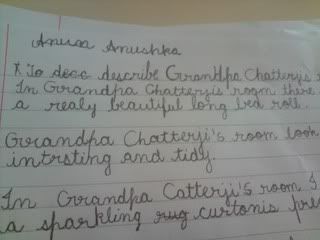 Anushka
* To describe Grandpa Chatterji's
In Grandpa Chatterji's room there
a realy beautiful long bed roll.
Grandpa Chatterji's room look
intrsting and tidy.
In Grandpa Catterji's room I
a sparkling rug curtonis pre